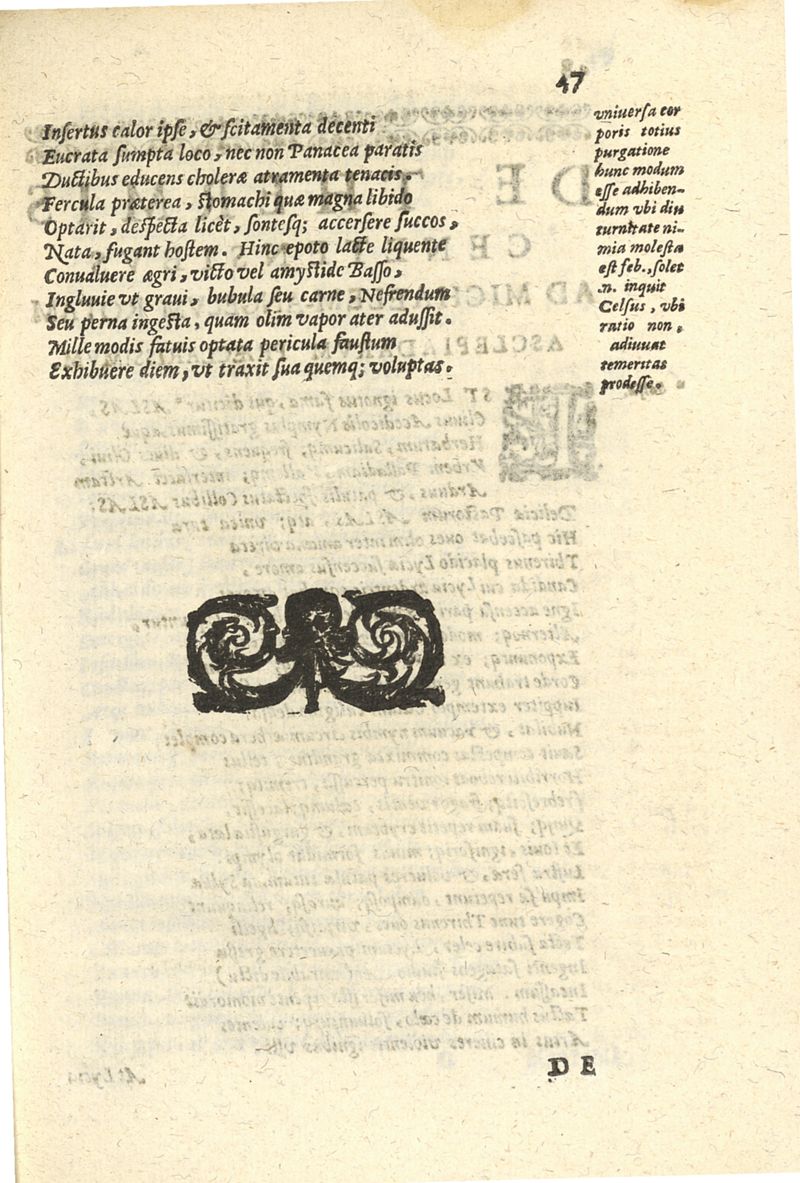 47
Insertus calor ipse, & scitamenta decenti
Eucrata sumpta loco, nec non Panacea paratis
Ductibus educens choleræ atramenta tenacis.
Fercula præterea, stomachi quæ magna libido
Optarit, despecta licèt, sontesq; accersere succos,
Nata, fugant hostem. Hinc epoto lacte liquente
Conualuere ægri, victo vel amystide Basso,
Ingluuie vt graui, bubula seu carne, Nefrendum
Seu perna ingesta, quam olim vapor ater adussit.
Mille modis fatuis optata pericula faustum
Exhibuere diem, vt traxit sua quemq; voluptas.
vniuersa cor
poris totius
purgatione
hunc modum
esse adhiben-
dum vbi diu
turnitate ni-
mia molesta
est feb., solet
.n. inquit
Celsus, vbi
ratio non
adiuuat
temeritas
prodesse.
DE